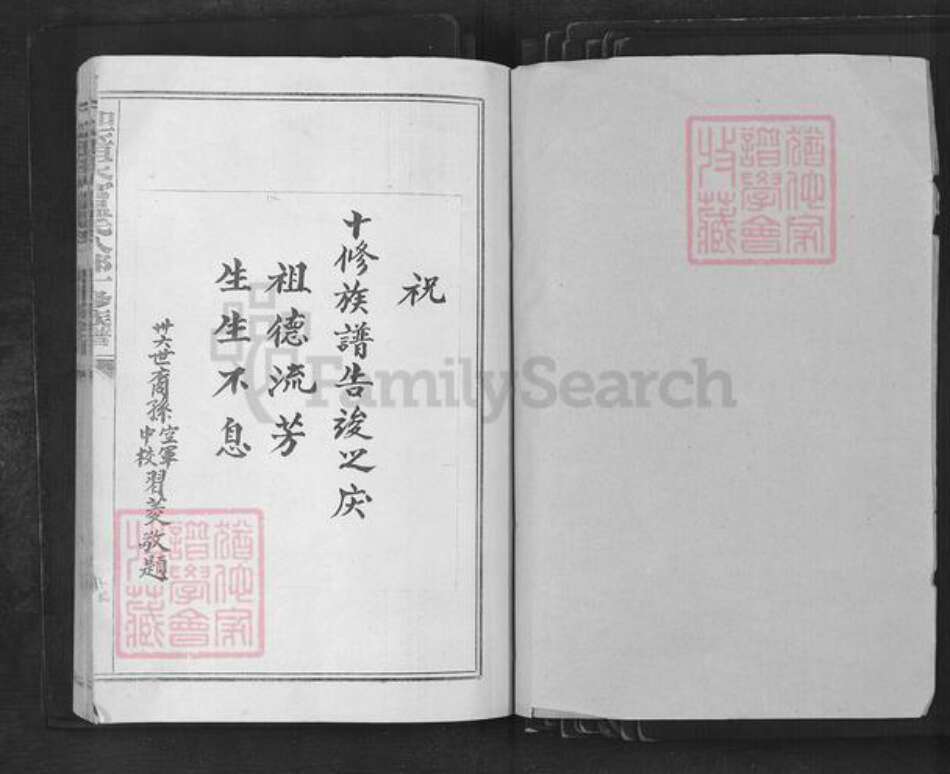 祝
十修族譜告竣之庆
祖德流芳
生生不息
卅六世裔孫空軍中校習菱敬題
FamilySearch
譜學會
收藏
譜學會
收藏